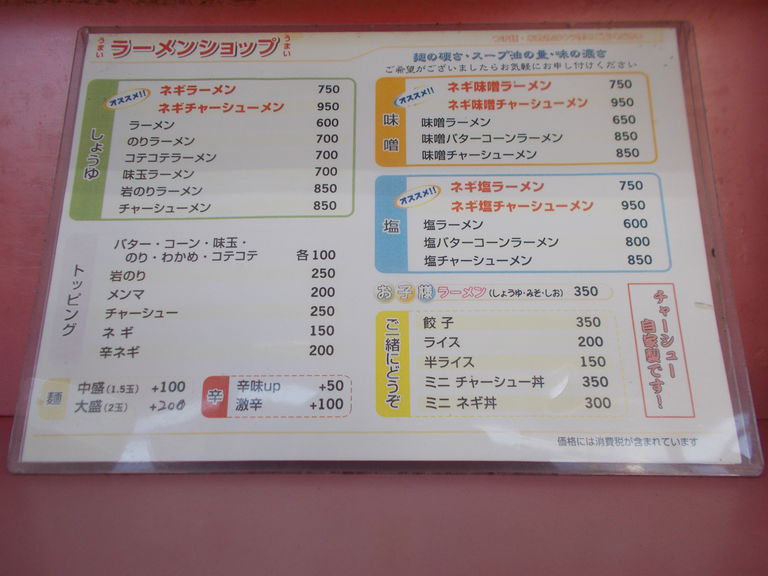 うまい ラーメンショップ うまい
麺の硬さ・スープ油の量、味の濃さ
ご希望がございましたらお気軽にお申し付けください
しょうゆ
オススメ!!
ネギラーメン 750
ネギチャーシューメン 950
ラーメン 600
のりラーメン 700
コテコテラーメン 700
味玉ラーメン 700
岩のりラーメン 850
チャーシューメン 850
トッピング
バター・コーン・味玉・
のり・わかめ・コテコテ 各100
岩のり 250
メンマ 200
チャーシュー 250
ネギ 150
辛ネギ 200
麺
中盛(1.5玉) +100
大盛(2玉) +200
辛
辛味up +50
激辛 +100
味噌
オススメ!!
ネギ味噌ラーメン 750
ネギ味噌チャーシューメン 950
味噌ラーメン 650
味噌バターコーンラーメン 850
味噌チャーシューメン 850
塩
オススメ!!
ネギ塩ラーメン 750
ネギ塩チャーシューメン 950
塩ラーメン 600
塩バターコーンラーメン 800
塩チャーシューメン 850
お子様ラーメン(しょうゆ・みそ・しお) 350
ご一緒にどうぞ
餃子 350
ライス 200
半ライス 150
ミニ チャーシュー丼 350
ミニ ネギ丼 300
チャーシュー
自家製です!
価格には消費税が含まれています